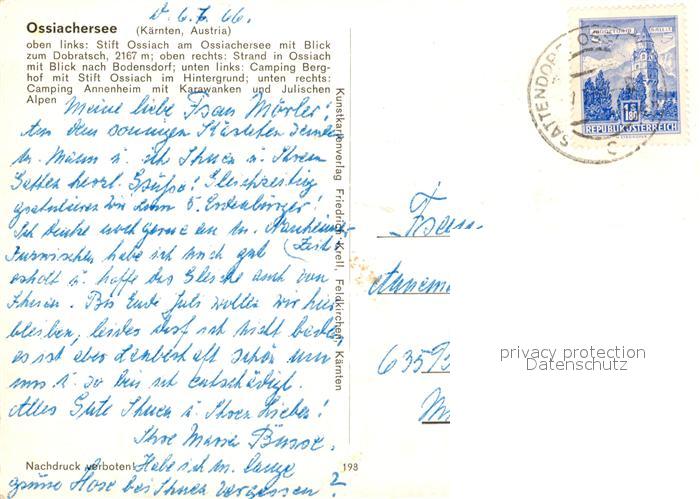 D. 6.7.66.
Ossiachersee (Kärnten, Austria)
oben links: Stift Ossiach am Ossiachersee mit Blick
zum Dobratsch, 2167 m; oben rechts: Strand in Ossiach
mit Blick nach Bodensdorf; unten links: Camping Berg-
hof mit Stift Ossiach im Hintergrund; unten rechts:
Camping Annenheim mit Karawanken und Julischen
Alpen
Meine liebe Frau Mörler!
Aus dem sonnigen Kärnten senden
m. Mann u. ich Ihnen u. Ihrem
Gatten herzl. Grüße! Gleichzeitig
gratulieren wir zum
Ich denke noch gerne an m. Nauheimer
Zeit!
Inzwischen habe ich mich gut
erholt u. hoffe das Gleiche auch von
Ihnen. Bis Ende Juli wollen wir hier
bleiben, leider darf ich nicht baden
es ist aber landschaftl. schön um
uns u. so bin ich entschädigt.
Alles Gute Ihnen u. Ihren Lieben!
Ihre Maria Busse.
Nachdruck verboten!
Habe ich m. lange
grüne Hose bei Ihnen vergessen?
198
Kunstkartenverlag Friedrich Krell, Feldkirchen, Kärnten
SATTENDORF
REPUBLIK ÖSTERREICH
Frau
Annem
635
privacy protection
Datenschutz